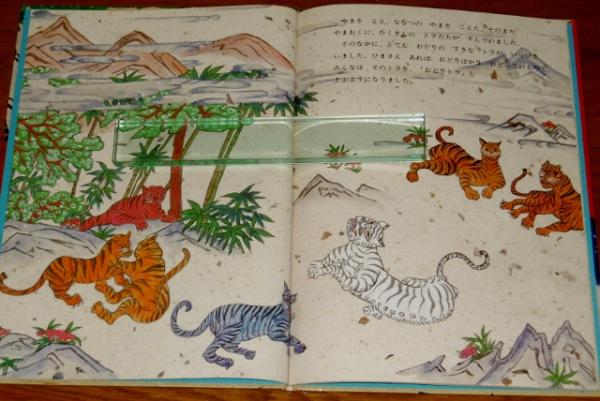 やまを こえ、ななつの やまを こえた、そのまた
やまおくに、たくさんの トラたちが すんでいました。
そのなかに、とても おどりの すきな トラが いっぴき
いました。ひまさえ あれば、おどりばかり おどっているので、
みんなは、そのトラを、「おどりトラ」と
よぶようになりました。